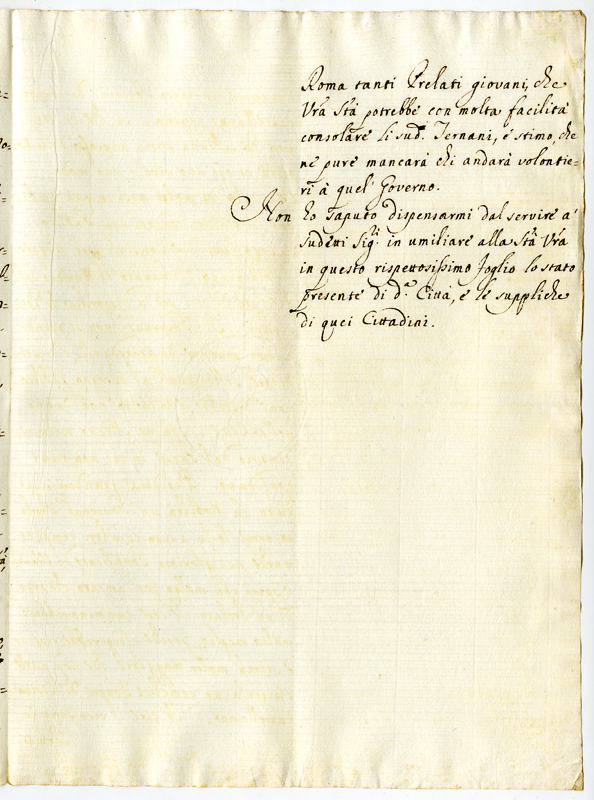 Roma tanti Prelati giovani, che
Vrã Stà potrebbe con molta facilità
consolare li sudⁱ. Ternani, e stimo, che
ne pure mancarà chi andarà volontie=
ri à quel' Governo.
Non ho saputo dispensarmi dal servire a'
sudetti Sigʳⁱ. in umiliare alla Stà Vrã
in questo rispettosissimo foglio lo stato
presente di dᵃ. Città, e le suppliche
di quei Cittadini.